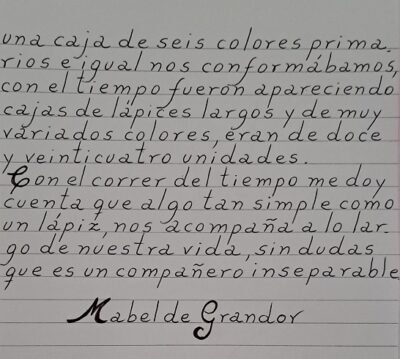 una caja de seis colores prima.
rios e igual nos conformábamos,
con el tiempo fueron apareciendo
cajas de lápices largos y de muy
variados colores, eran de doce
y veinticuatro unidades.
Con el correr del tiempo me doy
cuenta que algo tan simple como
un lápiz, nos acompaña a lo lar.
go de nuestra vida, sin dudas
que es un compañero inseparable
Mabel de Grandor